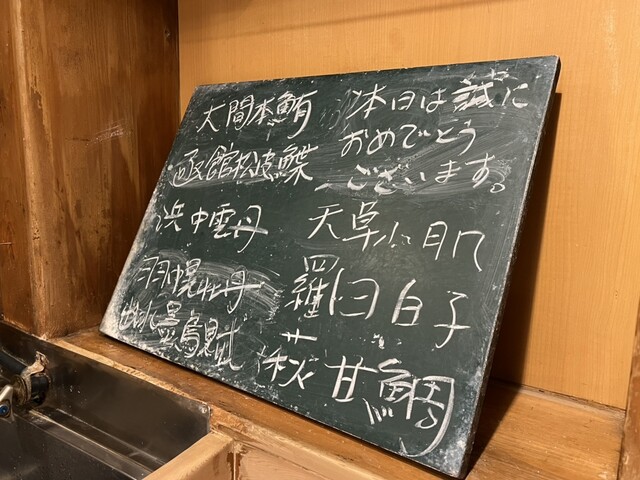 大間本鮪
函館松皮鰈
浜中雲丹
羽幌牡丹
出水墨烏賊
本日は誠に
おめでとう
ございます。
天草小肌
羅臼白子
萩甘鯛